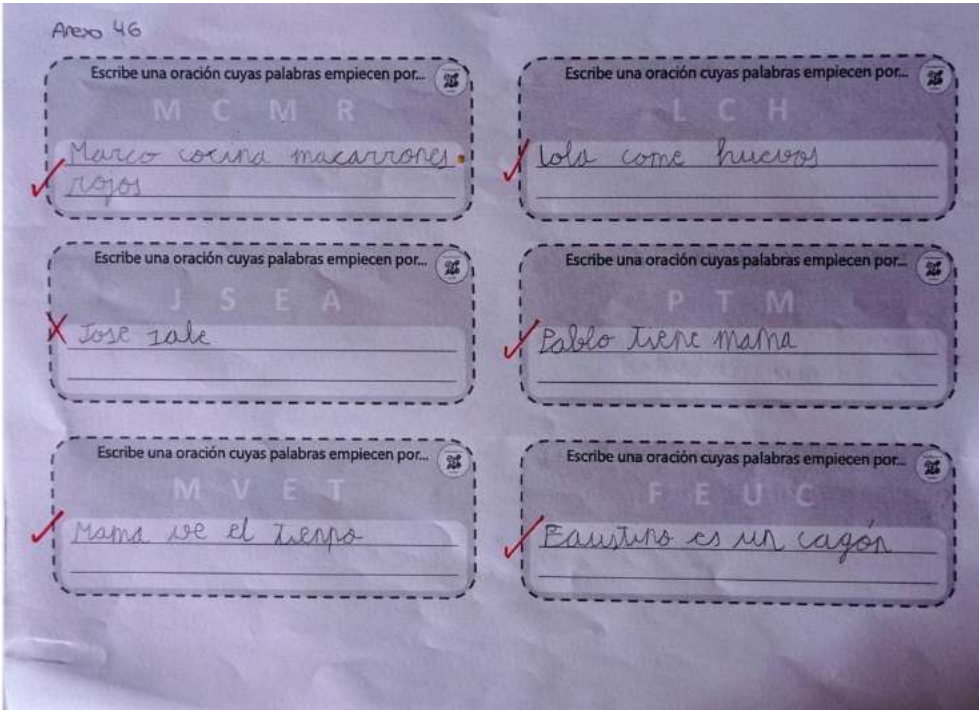 Anexo 46
Escribe una oración cuyas palabras empiecen por...
M C M R
Marco cocina macarrones
rojos
Escribe una oración cuyas palabras empiecen por...
L C H
Lola come huevos
Escribe una oración cuyas palabras empiecen por...
J S E A
Jose sale
Escribe una oración cuyas palabras empiecen por...
P T M
Pablo tiene mama
Escribe una oración cuyas palabras empiecen por...
M V E T
Mama ve el tienpo
Escribe una oración cuyas palabras empiecen por...
F E U C
Faustino es un cagón